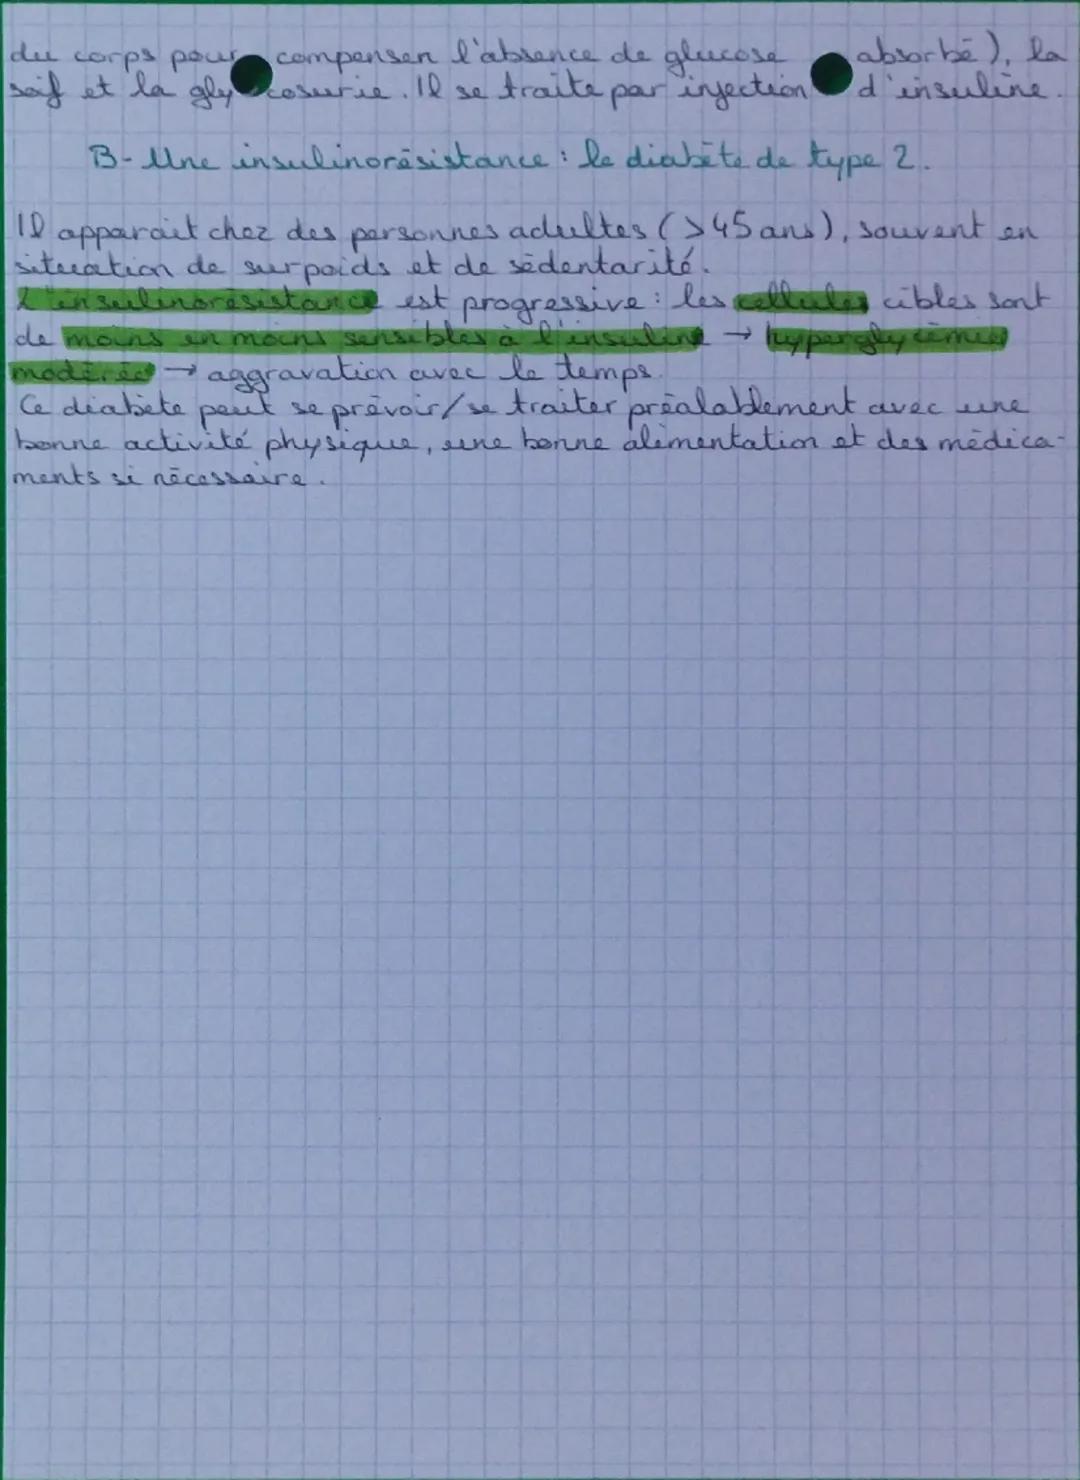 du corps pour compenser l'absence de glucose absorbé), la
soif et la glycosurie. Il se traite par injection d'insuline.
B- Une insulinorésistance : le diabète de type 2.
Il apparait chez des personnes adultes (> 45 ans), souvent en
situation de surpoids et de sédentarité.
L'insulinorésistance est progressive : les cellules cibles sont
de moins en moins sensibles à l'insuline → hyperglycémie
modérée → aggravation avec le temps.
Ce diabète peut se prévoir/se traiter préalablement avec une
bonne activité physique, une bonne alimentation et des médica-
ments si nécessaire.